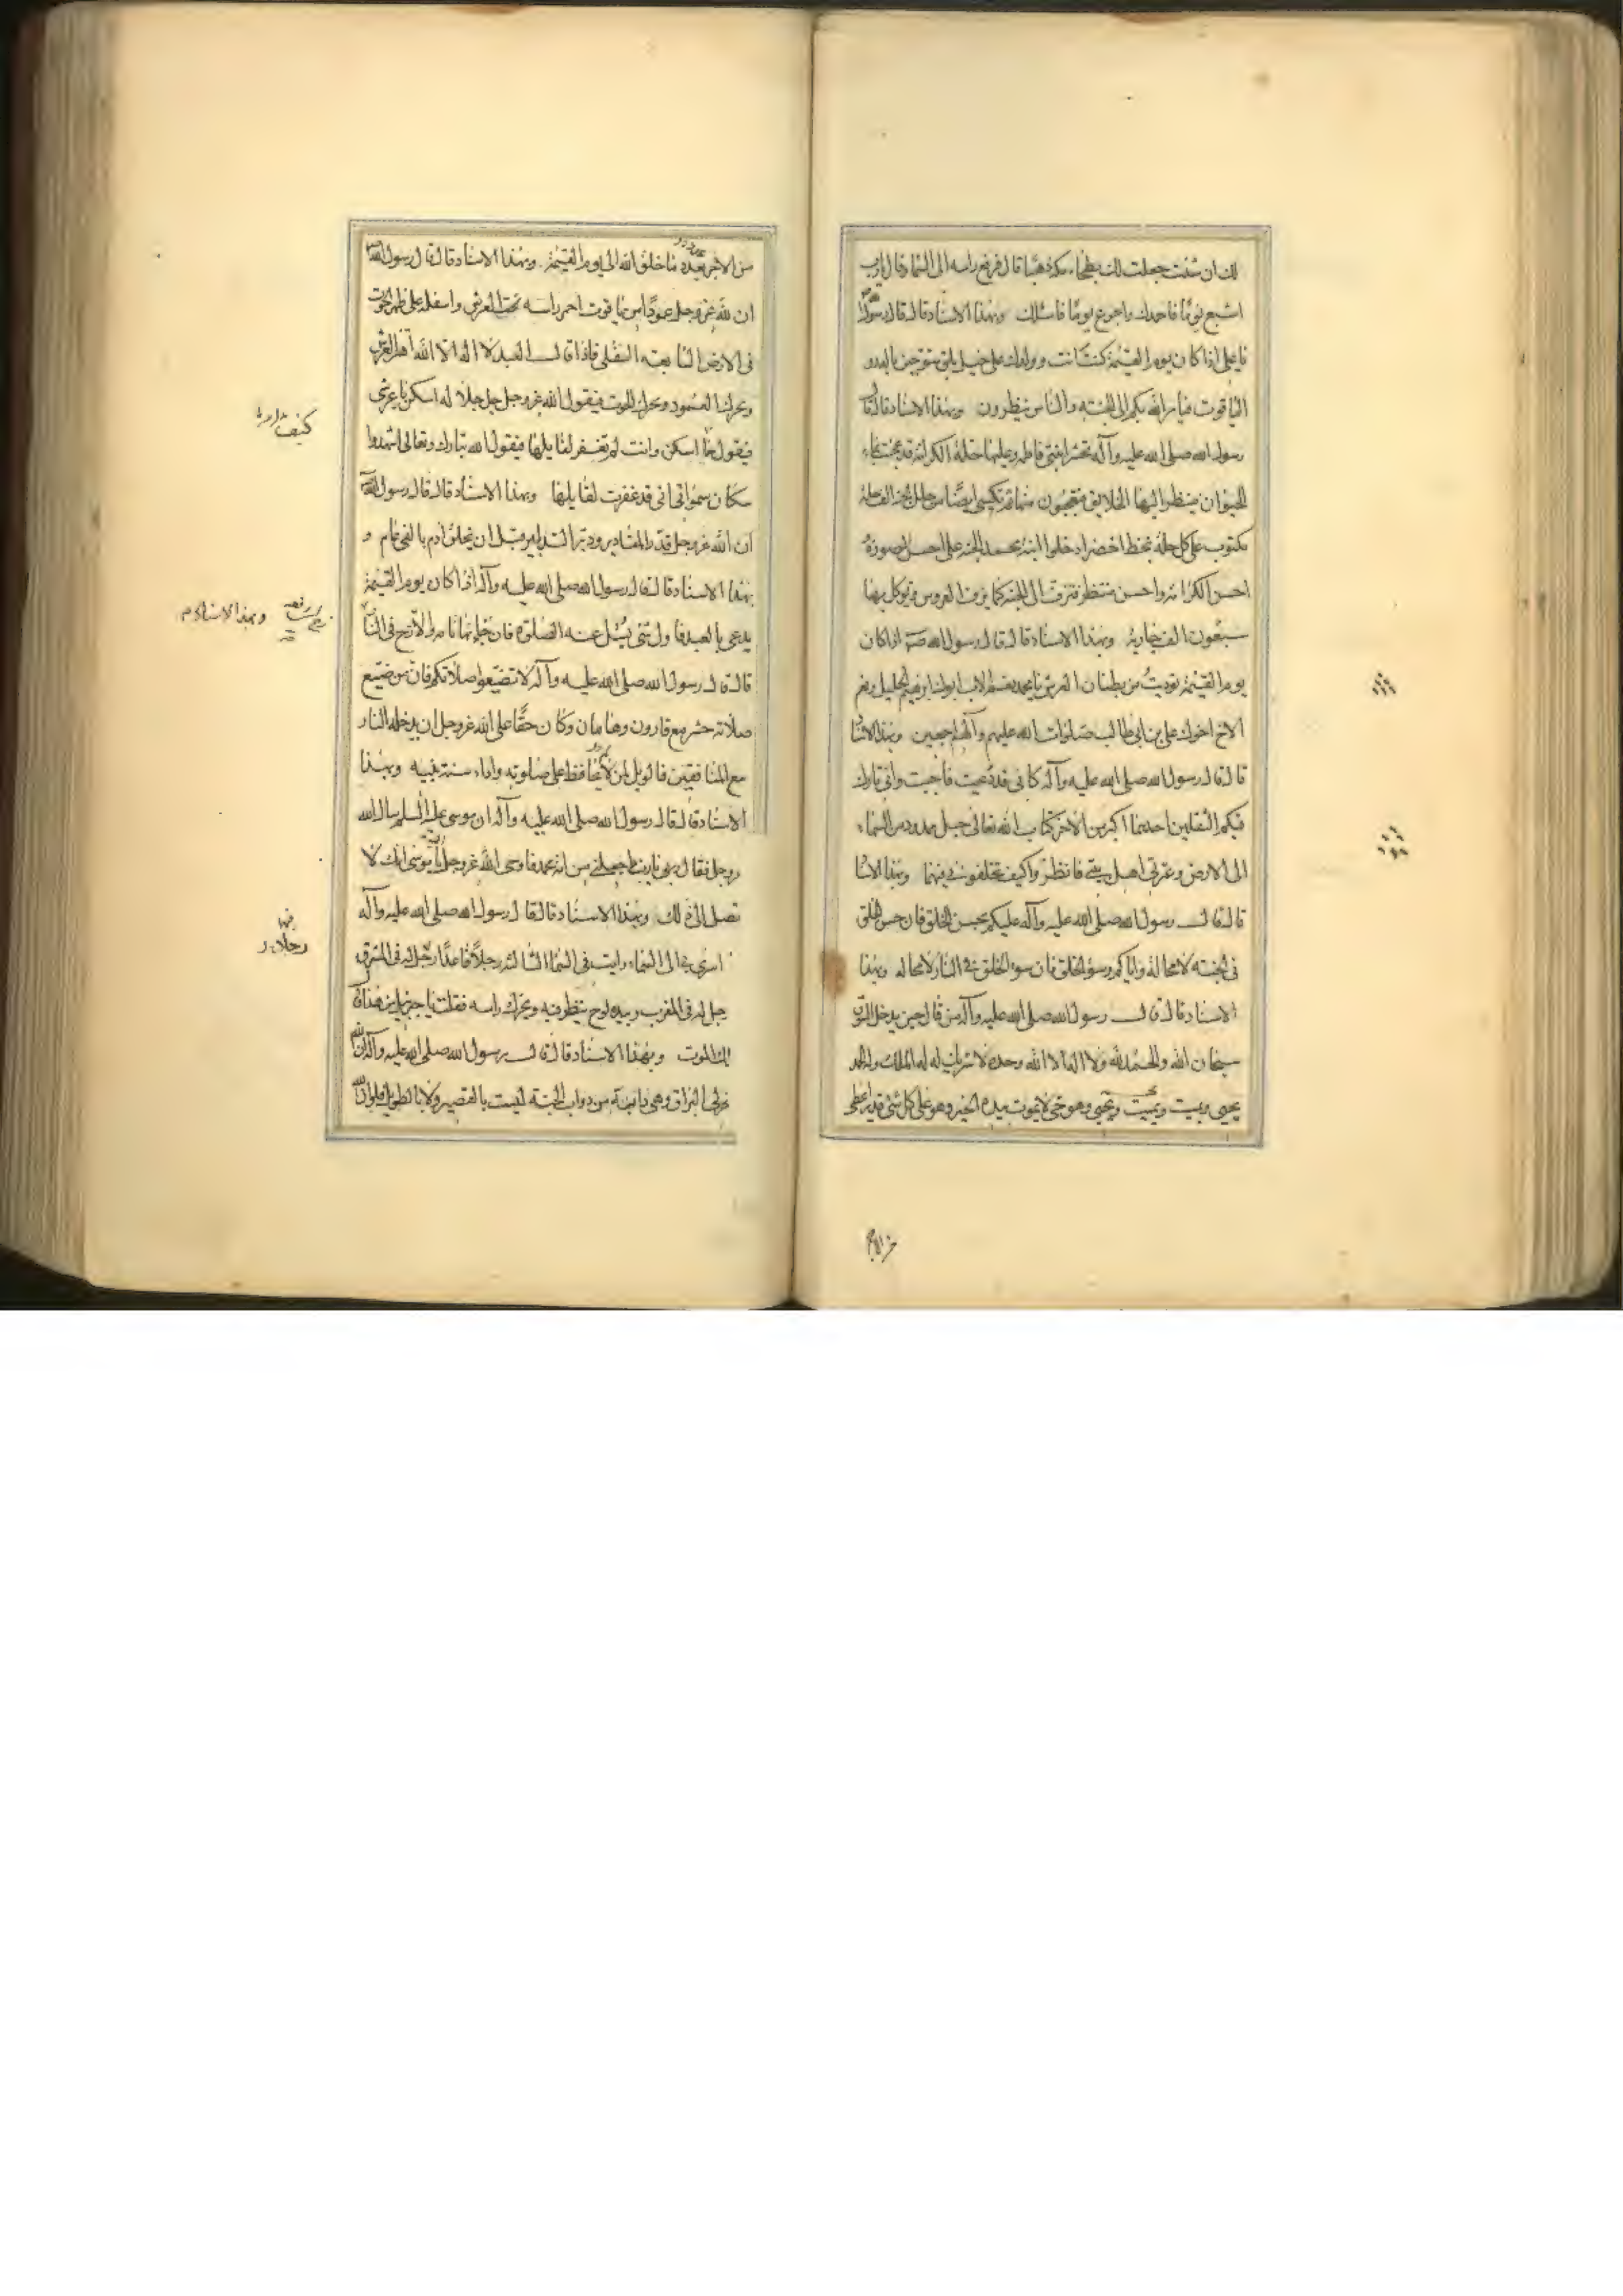 لك ان شئت جعلت لك بطحاء مكة ذهبا قال فرفع راسه الى السماء وقال يارب
اشبع يومًا فاحمدك واجوع يومًا فاسئلك وبهذا الاسناد قال قال رسول الله
يا على اذا كان يوم القيمة كنت انت وولدك على خيل بلق متوجين بالدر و
الياقوت فيأمر الله بكم الى الجنة والناس ينظرون وبهذا الاسناد قال قال
رسول الله صلى الله عليه وآله تحشر ابنتى فاطمه وعليها حلة الكرامة قد عجنت بماء
الحيوان ينظر اليها الخلايق فيتعجبون منها ثم تكسى ايضًا من حلل الجنة الف حلة
مكتوب على كل حلة بخط اخضر ادخلوا ابنة محمد الجنة على احسن الصورة
احسن الكرامة واحسن منتظر فتزف الى الجنة كما يزف العروس ويوكل بها
سبعون الف جارية وبهذا الاسناد قال قال رسول الله ص اذا كان
يوم القيمة نوديت من بطنان العرش يا محمد نعم الاب ابوك ابرهيم الخليل ونعم
الاخ اخوك على بن ابى طالب صلوات الله عليهم وآلهم اجمعين وبهذا الاسناد
قال قال رسول الله صلى الله عليه وآله كانى قد دعيت فاجبت وانى تارك
فيكم الثقلين احدهما اكبر من الاخر كتاب الله تعالى حبل ممدود من السماء
الى الارض وعترتى اهل بيتى فانظروا كيف تخلفونى فيهما وبهذا الاسناد
قال قال رسول الله صلى الله عليه وآله عليكم بحسن الخلق فان حسن الخلق
فى الجنة لا محالة واياكم وسوء الخلق فان سوء الخلق فى النار لا محاله وبهذا
الاسناد قال قال رسول الله صلى الله عليه وآله من قال حين يدخل السوق
سبحان الله والحمد لله ولا اله الا الله وحده لا شريك له له الملك وله الحمد
يحيى ويميت ويميت ويحيى وهو حى لا يموت بيده الخير وهو على كل شئ قدير اعطى
من الاجر
من الاجر بعدد ما خلق الله الى يوم القيمة وبهذا الاسناد قال قال رسول الله
ان لله عز وجل عمودًا من ياقوت احمر راسه تحت العرش واسفله على ظهر الحوت
فى الارض السابعة السفلى فاذا قال العبد لا اله الا الله اهتز العرش
وتحرك العمود وتحرك الحوت فيقول الله عز وجل جل جلاله اسكن يا عرشى
فيقول اسكن وانت لم تغفر لقايلها فيقول الله تبارك وتعالى اشهدوا
سكان سمواتى انى قد غفرت لقايلها وبهذا الاسناد قال قال رسول الله
ان الله عز وجل قدر المقادير ودبر التدابير قبل ان يخلق آدم بالفى عام و
بهذا الاسناد قال قال رسول الله صلى الله عليه وآله اذا كان يوم القيمة
يدعى بالعبد فاول شئ يسئل عنه الصلوة فان جاء بها تامة والا زخ فى النار
قال قال رسول الله صلى الله عليه وآله لا تضيعوا صلاتكم فان من ضيع
صلاته حشر مع قارون وهامان وكان حقًا على الله عز وجل ان يدخله النار
مع المنافقين فالويل لمن لم يحافظ على صلوته واداء سنة نبيه وبهذا
الاسناد قال قال رسول الله صلى الله عليه وآله ان موسى عليه السلم سال الله
وجل فقال يارب اجعلنى من امة محمد فاوحى الله عز وجل يا موسى انك لا
تصل الى ذلك وبهذا الاسناد قال قال رسول الله صلى الله عليه وآله
اسرى بى الى السماء رايت فى السماء الثالثة رجلا قاعدًا رجل له فى المشرق
رجل له فى المغرب وبيده لوح ينظر فيه ويحرك راسه فقلت يا جبرئيل من هذا قال
ملك الموت وبهذا الاسناد قال قال رسول الله صلى الله عليه وآله ان الله
سخر لى البراق وهى دابة من دواب الجنة ليست بالقصير ولا بالطويل فلو ان الله
كيف
وبهذا الاسناد